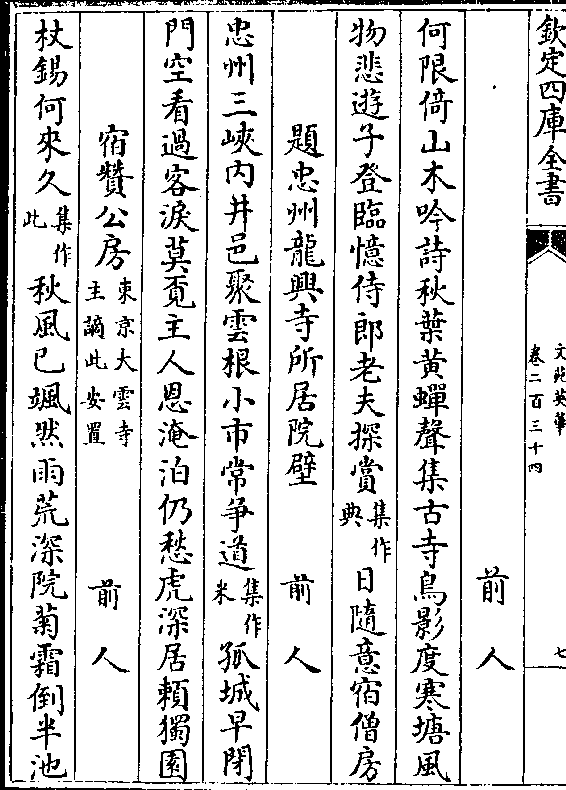 欽定四庫全書
文苑英華
卷二百三十四
七
前人
何限倚山木吟詩秋葉黃蟬聲集古寺鳥影度寒塘風
物悲遊子登臨憶侍郎老夫探賞集作典日隨意宿僧房
題忠州龍興寺所居院壁 前人
忠州三峽内井邑聚雲根小市常爭道集作米孤城早閉
門空看過客淚莫覓主人恩淹泊仍愁虎深居賴獨園
宿贊公房東京大雲寺主謫此安置 前人
杖錫何來久集作此秋風已颯然雨荒深院菊霜倒半池